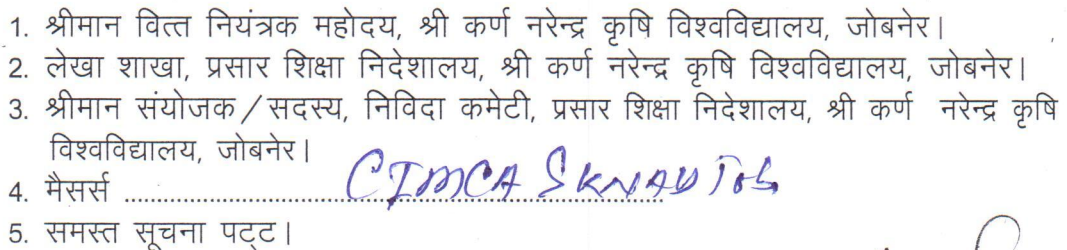 1. श्रीमान वित्त नियंत्रक महोदय, श्री कर्ण नरेन्द्र कृषि विश्वविद्यालय, जोबनेर।
2. लेखा शाखा, प्रसार शिक्षा निदेशालय, श्री कर्ण नरेन्द्र कृषि विश्वविद्यालय, जोबनेर।
3. श्रीमान संयोजक/सदस्य, निविदा कमेटी, प्रसार शिक्षा निदेशालय, श्री कर्ण नरेन्द्र कृषि
विश्वविद्यालय, जोबनेर।
4. मैसर्स ........ CIMCA SKNAU
5. समस्त सूचना पट्ट।